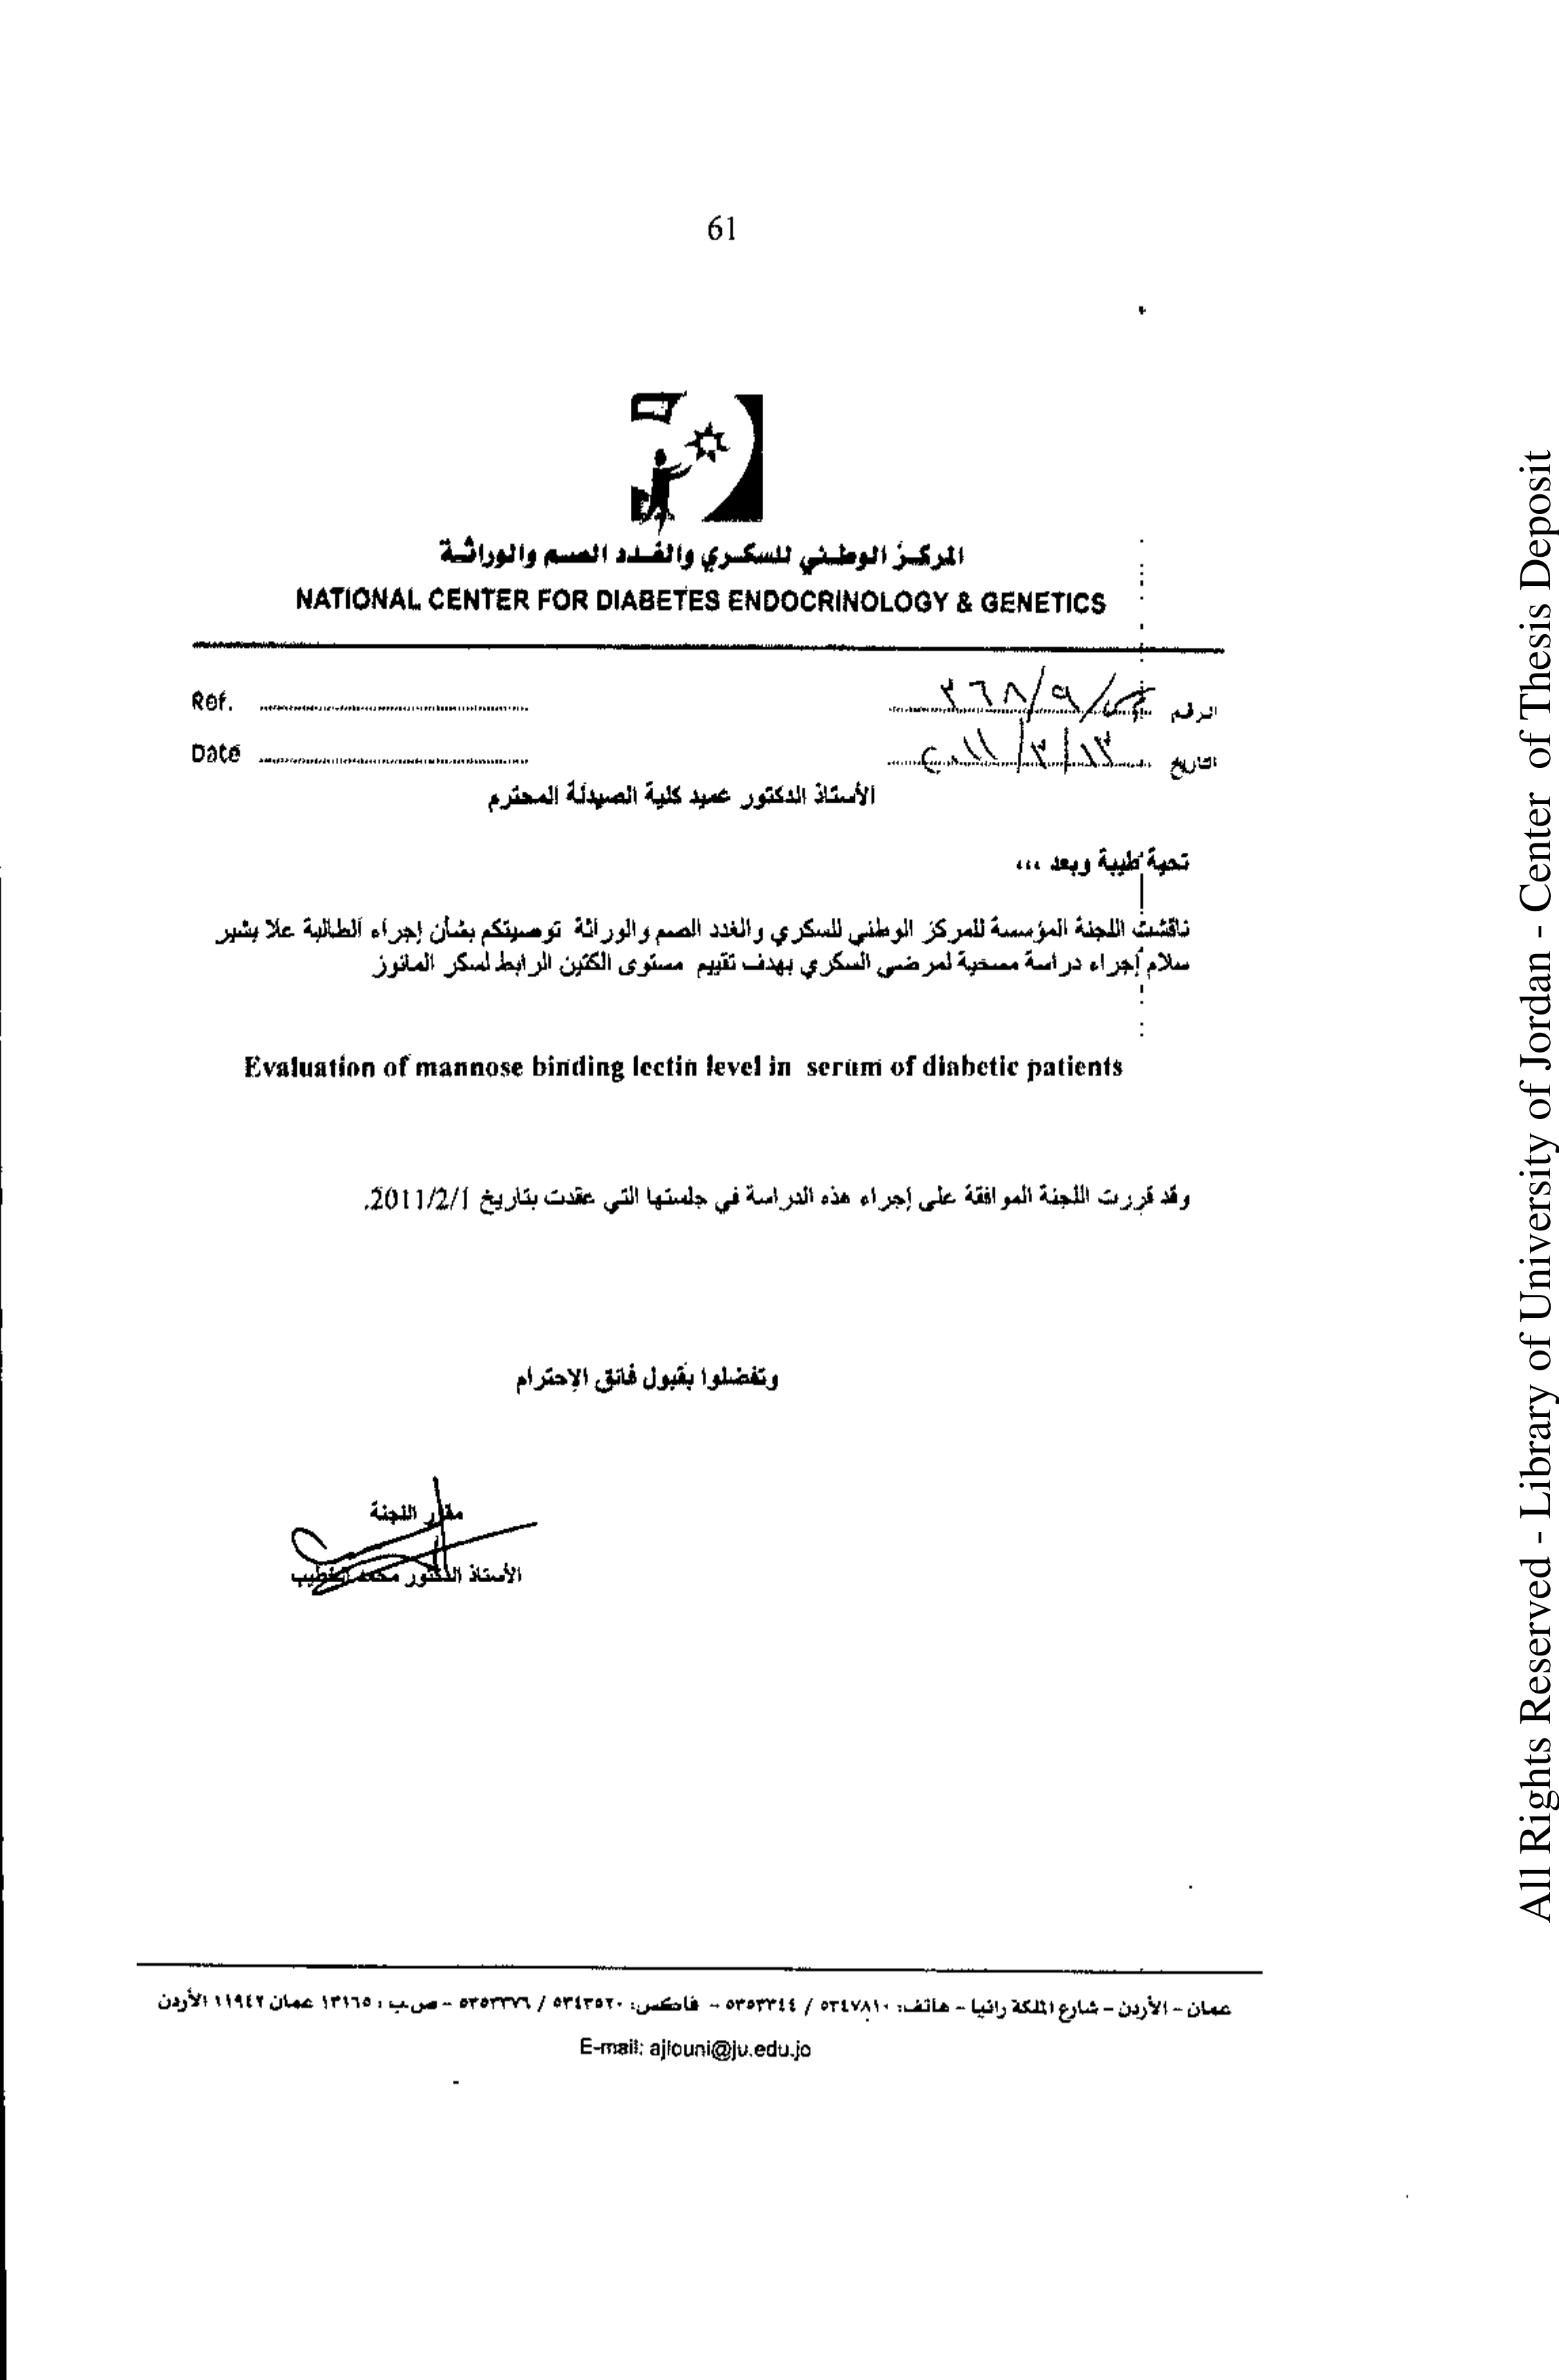 61
المركز الوطني للسكري والغدد الصم والوراثة
NATIONAL CENTER FOR DIABETES ENDOCRINOLOGY & GENETICS
Ref. الرقم
Date التاريخ ٢٠١١/٣/١٣
الأستاذ الدكتور عميد كلية الصيدلة المحترم
تحية طيبة وبعد ،،،
ناقشت اللجنة المؤسسة للمركز الوطني للسكري والغدد الصم والوراثة توصيتكم بشأن إجراء الطالبة علا بشير
سلام إجراء دراسة مسحية لمرضى السكري بهدف تقييم مستوى الكتين الرابط لسكر المانوز
Evaluation of mannose binding lectin level in serum of diabetic patients
وقد قررت اللجنة الموافقة على إجراء هذه الدراسة في جلستها التي عقدت بتاريخ 2011/2/1.
وتفضلوا بقبول فائق الإحترام
مقرر اللجنة
الأستاذ الدكتور محمد الخطيب
عمان - الأردن - شارع الملكة رانيا - هاتف: ٥٣٤٧٨١٠ / ٥٣٥٣٣٤٤ - فاكس: ٥٣٤٣٥٢٠ / ٥٣٥٣٣٧٦ - ص.ب : ١٣١٦٥ عمان ١١٩٤٢ الأردن
E-mail: ajlouni@ju.edu.jo
All Rights Reserved - Library of University of Jordan - Center of Thesis Deposit